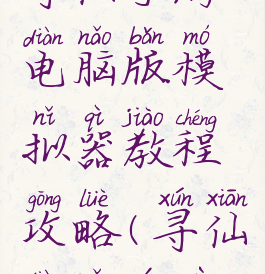 diàn nǎo bǎn mó
电脑版模
nǐ qì jiào chéng
拟器教程
gōng lüè xún xiān
攻略(寻仙